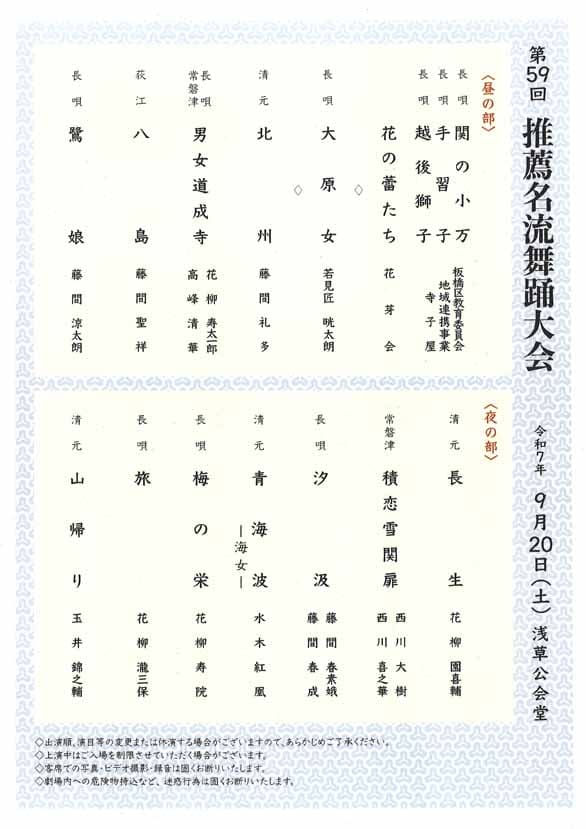 第59回 推薦名流舞踊大会
令和7年 9月20日(土) 浅草公会堂
〈昼の部〉
長唄 関の小万
長唄 手習子
長唄 越後獅子
板橋区教育委員会
地域連携事業
寺子屋
花の蕾たち 花芽会
◇
長唄 大原女 若見匠 晄太朗
◇
清元 北州 藤間礼多
長唄
常磐津
男女道成寺
花柳寿太一郎
高峰清華
荻江 八島 藤間聖祥
長唄 鷺娘 藤間涼太朗
〈夜の部〉
清元 長生 花柳園喜輔
常磐津 積恋雪関扉
西川大樹
西川喜之華
長唄 汐汲
藤間春素娥
藤間春成
清元 青海波
―海女―
水木紅凰
長唄 梅の栄 花柳寿院
長唄 旅 花柳瀧三保
清元 山帰り 玉井錦之輔
◇出演順、演目等の変更または休演する場合がございますので、あらかじめご了承ください。
◇上演中はご入場を制限させていただく場合がございます。
◇客席での写真・ビデオ撮影・録音は固くお断りいたします。
◇劇場内への危険物持込など、迷惑行為は固くお断りいたします。